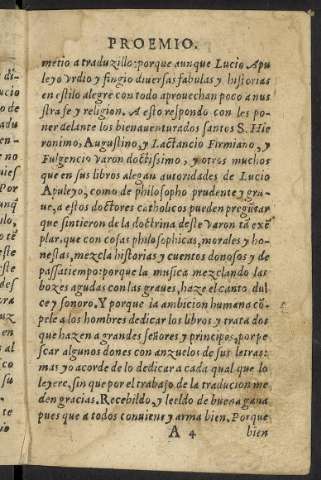 PROEMIO.
metio a traduzillo: porque aunque Lucio Apu
leyo vrdio y fingio diuersas fabulas y historias
en estilo alegre con todo aprouechan poco a nue
stra fe y religion. A esto respondo con les po
ner delante los bienauenturados santos S. Hie
ronimo, Augustino, y Lactancio Firmiano, y
Fulgencio varon doctissimo, y otros muchos
que en sus libros alegan autoridades de Lucio
Apuleyo, como de philosopho prudente y gra-
ue, a estos doctores catholicos pueden pregũtar
que sintieron de la doctrina deste varon tã exẽ
plar. que con cosas philosophicas, morales y ho-
nestas, mezcla historias y cuentos donosos y de
passatiempo: porque la musica mezclando las
bozes agudas con las graues, haze el canto dul
ce y sonoro. Y porque la ambicion humana cõ-
pele a los hombres dedicar los libros y trata dos
que hazen a grandes señores y principes, por pe
scar algunos dones con anzuelos de sus letras:
mas yo acorde de lo dedicar a cada qual que lo
leyere, sin que por el trabajo de la traducion me
den gracias. Recebildo, y leeldo de buena gana
pues que a todos conuiene y arma bien. Porque
A 4 bien